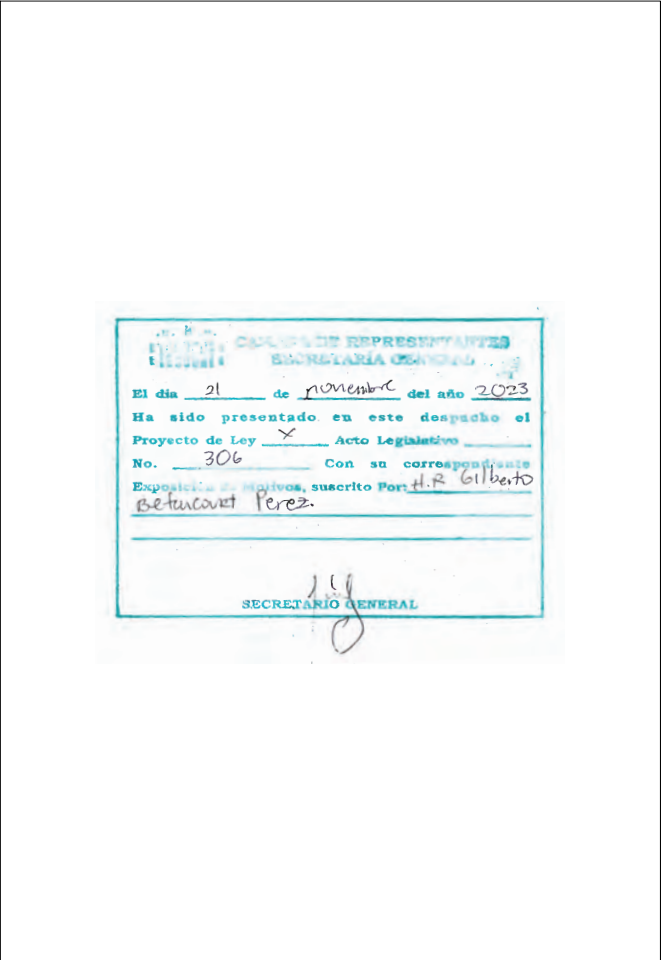 CAMARA DE REPRESENTANTES
SECRETARÍA GENERAL
El día 21 de noviembre del año 2023
Ha sido presentado en este despacho el
Proyecto de Ley X Acto Legislativo
No. 306 Con su correspondiente
Exposición de Motivos, suscrito Por: H.R Gilberto
Betancourt Perez.
SECRETARIO GENERAL